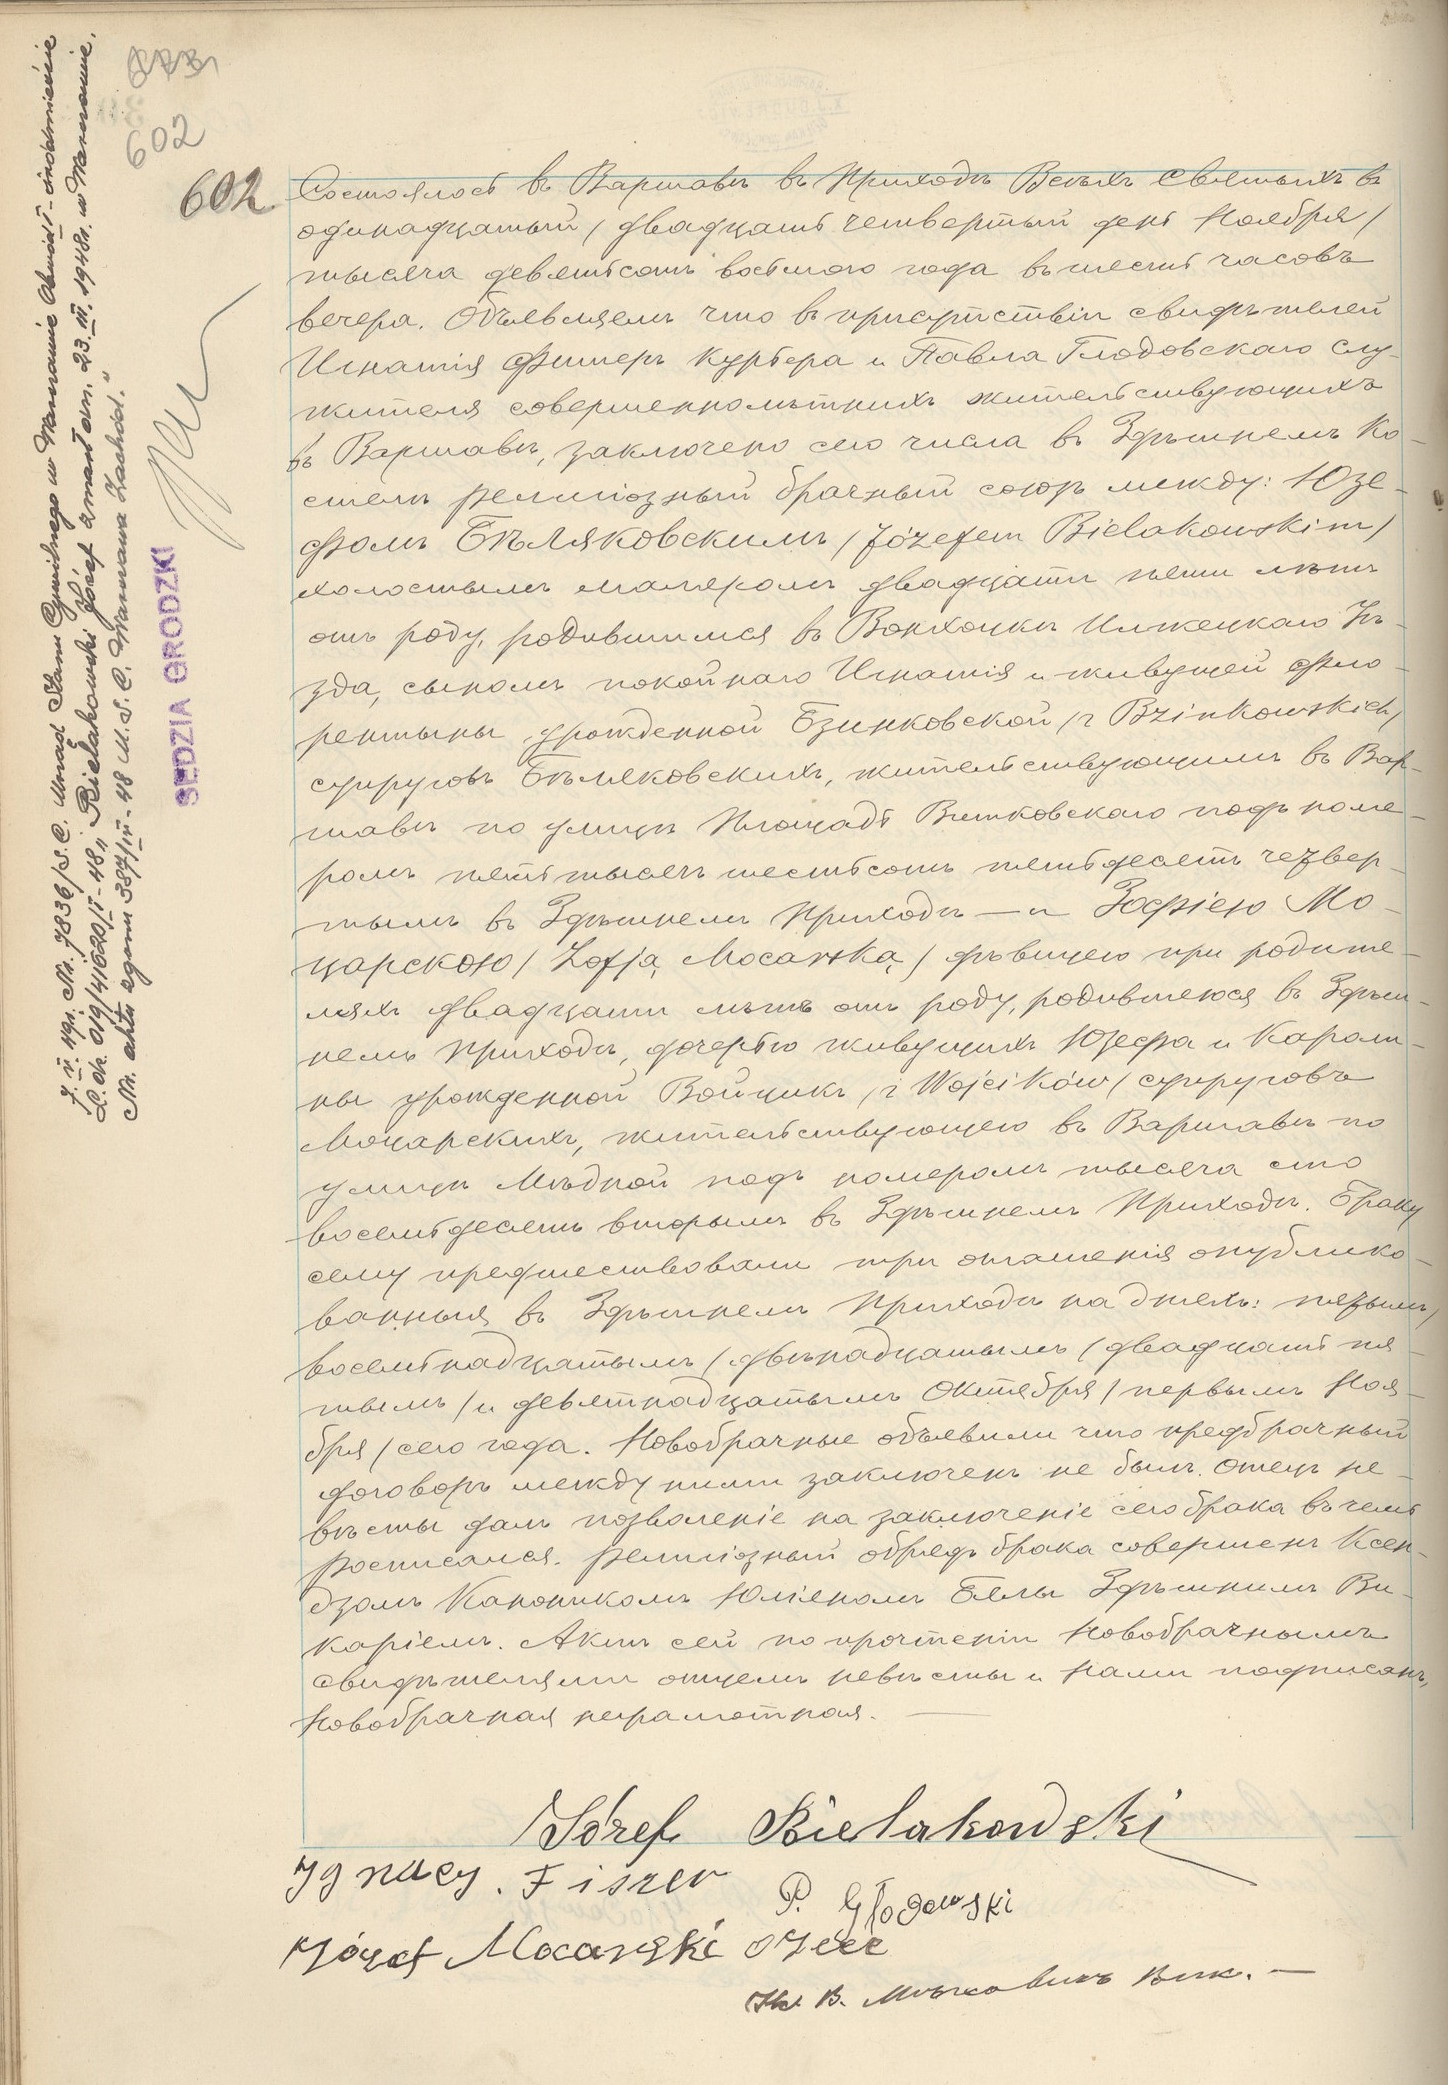 873
602
602
J. V. 191. Nr. 7836/S.C. Urząd Stanu Cywilnego w Warszawie
L. dz. 019/41620/V-48 „Bielakowski Józef zmarł dn. 23.III.1948r. w Warszawie.
Nr. aktu zgonu 387/IV-48 U.S.C. Warszawa Zachód."
SĘDZIA GRODZKI
Состоялось въ Варшавѣ въ Приходѣ Всѣхъ Святыхъ въ
одинадцатый / двадцать четвертый день Ноября /
тысяча девятьсотъ восьмого года въ шесть часовъ
вечера. Объявляемъ что въ присутствіи свидѣтелей
Игнатія Фишеръ курьера и Павла Глодовскаго слу-
жителя совершеннолѣтнихъ жительствующихъ
въ Варшавѣ, заключено сего числа въ Здѣшнемъ Ко-
стелѣ религіозный брачный союзъ между: Юзе-
фомъ Бѣляковскимъ / Józefem Bielakowskim /
холостымъ маляромъ двадцати пяти лѣтъ
отъ роду, родившимся въ Вонхоцкѣ Илжецкаго Уѣ-
зда, сыномъ покойнаго Игнатія и живущей Фло-
рентыны урожденной Бзинковской / z Bzinkowskich /
супруговъ Бѣляковскихъ, жительствующимъ въ Вар-
шавѣ по улицѣ Площадь Витковскаго подъ номе-
ромъ пять тысячъ шестьсотъ пятьдесятъ четвер-
тымъ въ Здѣшнемъ Приходѣ — и Зофіею Мо-
царскою / Zofją Mocarską / дѣвицею при родите-
ляхъ двадцати лѣтъ отъ роду, родившеюся въ Здѣш-
немъ Приходѣ, дочерью живущихъ Юзефа и Кароли-
ны урожденной Войцикъ / z Wojcików / супруговъ
Моцарскихъ, жительствующею въ Варшавѣ по
улицѣ Мѣдной подъ номеромъ тысяча сто
восемьдесятъ вторымъ въ Здѣшнемъ Приходѣ. Браку
сему предшествовали три оглашенія опублико-
ванныя въ Здѣшнемъ Приходѣ на дняхъ: пятымъ /
восемнадцатымъ / двѣнадцатымъ / двадцать пя-
тымъ / и девятнадцатымъ Октября / первымъ Ноя-
бря / сего года. Новобрачные объявили что предбрачный
договоръ между ними заключенъ не былъ. Отецъ не-
вѣсты далъ позволеніе на заключеніе сего брака въ чемъ
росписался. Религіозный обрядъ брака совершенъ Ксен-
дзомъ Каноникомъ Юліаномъ Бялы Здѣшнимъ Ви-
каріемъ. Актъ сей по прочтеніи Новобрачнымъ
свидѣтелями отцемъ невѣсты и Нами подписанъ,
Новобрачная неграмотная. —
Józef Bielakowski
Ignacy. Fiszer
P. Głodowski
Józef Mocarski ojciec
Кс. В. Вик. —